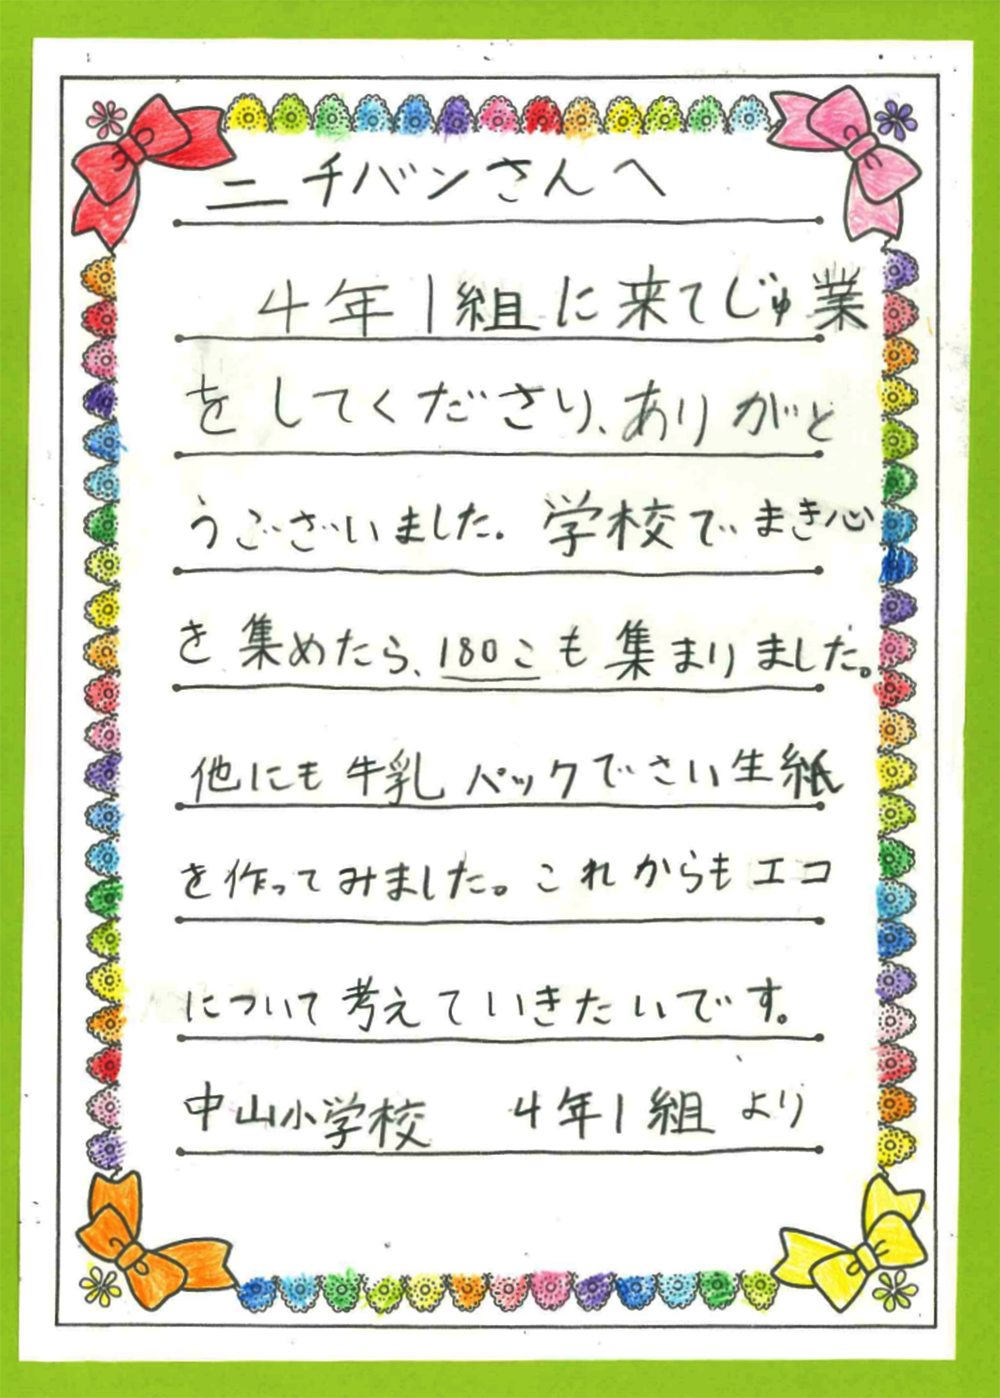 ニチバンさんへ
4年1組に来てじゅ業
をしてくださり、ありがと
うございました。学校でまき心
を集めたら、180こも集まりました。
他にも牛乳パックでさい生紙
を作ってみました。これからもエコ
について考えていきたいです。
中山小学校 4年1組より